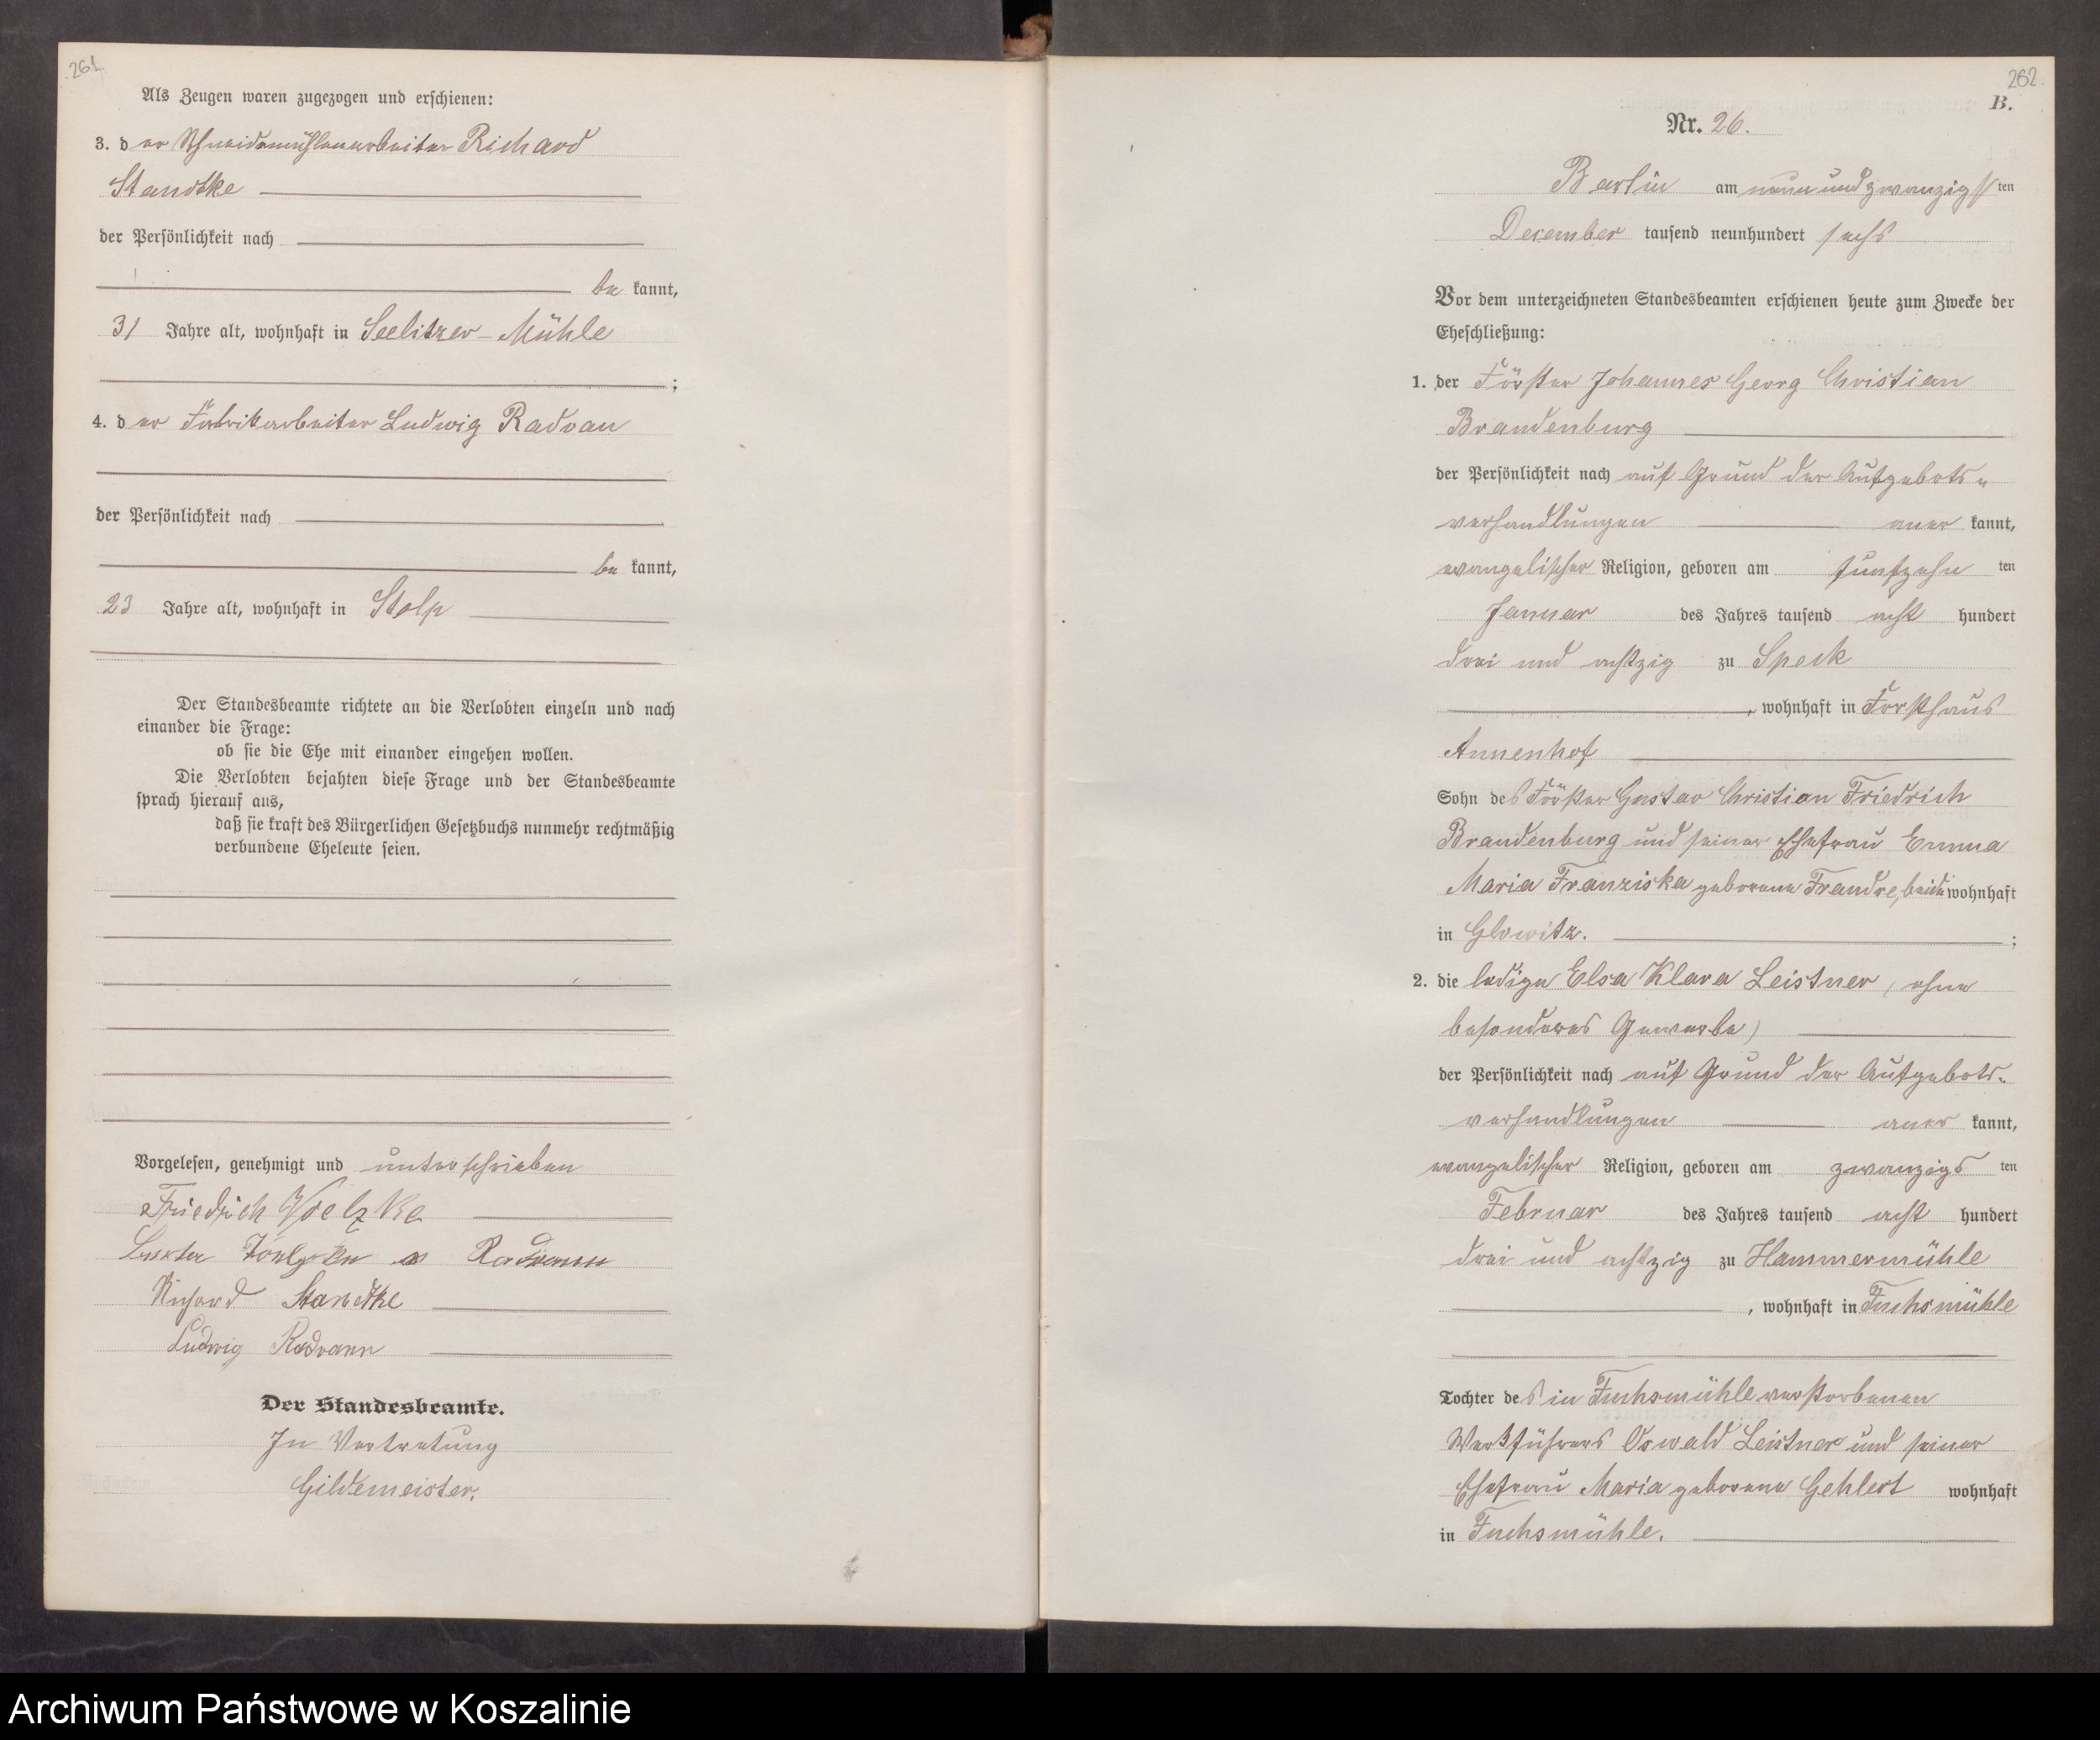 261.
Als Zeugen waren zugezogen und erschienen:
3. der Schneidemühlenarbeiter Richard
Standtke
der Persönlichkeit nach
be kannt,
31 Jahre alt, wohnhaft in Seelitzer-Mühle
;
4. der Fabrikarbeiter Ludwig Radvan
der Persönlichkeit nach
be kannt,
23 Jahre alt, wohnhaft in Stolp
Der Standesbeamte richtete an die Verlobten einzeln und nach
einander die Frage:
ob sie die Ehe mit einander eingehen wollen.
Die Verlobten bejahten diese Frage und der Standesbeamte
sprach hierauf aus,
daß sie kraft des Bürgerlichen Gesetzbuchs nunmehr rechtmäßig
verbundene Eheleute seien.
Vorgelesen, genehmigt und unterschrieben
Friedrich Voelzke
Radvann
Richard Standtke
Ludwig Radvann
Der Standesbeamte.
In Vertretung
Gildemeister.
262.
B.
Nr. 26.
am neunundzwanzigsten
December tausend neunhundert sechs
Vor dem unterzeichneten Standesbeamten erschienen heute zum Zwecke der
Eheschließung:
1. der Förster Johannes Georg Christian
Brandenburg
der Persönlichkeit nach auf Grund der Aufgebots-
verhandlungen aner kannt,
evangelischer Religion, geboren am fünfzehn ten
Januar des Jahres tausend acht hundert
drei und achtzig zu Speck
, wohnhaft in Forsthaus
Annenhof
Sohn des Förster Gustav Christian Friedrich
Brandenburg und seiner Ehefrau Emma
Maria Franziska geborene Frandre, beide wohnhaft
in Glowitz. ;
2. die ledige Elsa Klara Leistner, (ohne
besonderes Gewerbe)
der Persönlichkeit nach auf Grund der Aufgebots-
verhandlungen aner kannt,
evangelischer Religion, geboren am zwanzigs ten
Februar des Jahres tausend acht hundert
drei und achtzig zu Hammermühle
, wohnhaft in Fuchsmühle
Tochter des in Fuchsmühle verstorbenen
Werkführers Oswald Leistner und seiner
Ehefrau Maria geborene Gehlert wohnhaft
in Fuchsmühle.
Archiwum Państwowe w Koszalinie